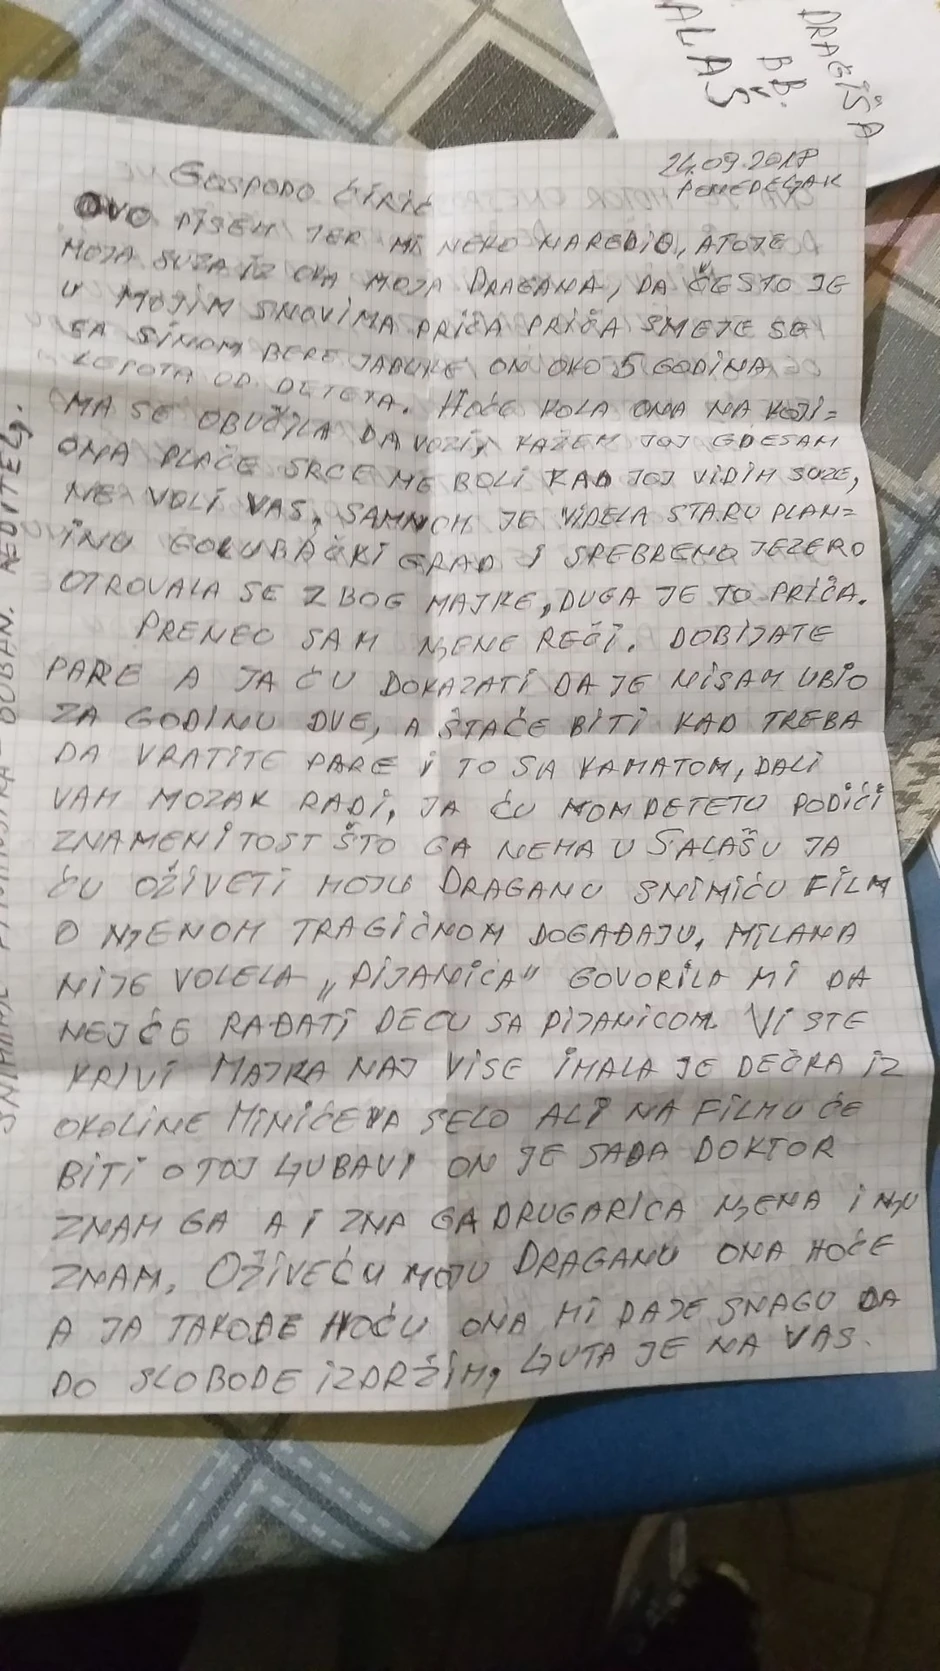 DRAGIŠA
BB.
ALAŠ
24.09.2018
PONEDELJAK
GOSPODO ĆIRIĆ
OVO PIŠEM JER MI NEKO NAREDIO, ATOJE
MOJA SUZA IZ OKA MOJA DRAGANA, DA ČESTO JE
U MOJIM SNOVIMA PRIČA PRIČA SMEJE SE
SA SINOM BERE JABUKE ON OKO 5 GODINA
LEPOTA OD DETETA. HOĆE KOLA ONA NA KOJI=
MA SE OBUČILA DA VOZI, KAŽEM JOJ GDESAM
ONA PLAČE SRCE ME BOLI KAD JOJ VIDIM SUZE,
NE VOLI VAS, SAMNOM JE VIDELA STARU PLAN=
INU GOLUBAČKI GRAD I SREBRENO JEZERO
OTROVALA SE ZBOG MAJKE, DUGA JE TO PRIČA.
PRENEO SAM NJENE REČI. DOBIJATE
PARE A JA ĆU DOKAZATI DA JE NISAM UBIO
ZA GODINU DVE, A ŠTAĆE BITI KAD TREBA
DA VRATITE PARE I TO SA KAMATOM, DALI
VAM MOZAK RADI, JA ĆU MOM DETETU PODIĆI
ZNAMENITOST ŠTO GA NEMA U SALAŠU JA
ĆU OŽIVETI MOJU DRAGANU SNIMIĆU FILM
O NJENOM TRAGIČNOM DOGAĐAJU, MILANA
NIJE VOLELA „PIJANICA" GOVORILA MI DA
NEJĆE RAĐATI DECU SA PIJANICOM. VI STE
KRIVI MAJKA NAJ VISE IMALA JE DEČKA IZ
OKOLINE MINIĆEVA SELO ALI NA FILMU ĆE
BITI O TOJ LJUBAVI ON JE SADA DOKTOR
ZNAM GA A I ZNA GA DRUGARICA NJENA I NJU
ZNAM, OŽIVEĆU MOJU DRAGANU ONA HOĆE
A JA TAKOĐE HOĆU ONA MI DAJE SNAGU DA
DO SLOBODE IZDRŽIM, LJUTA JE NA VAS.